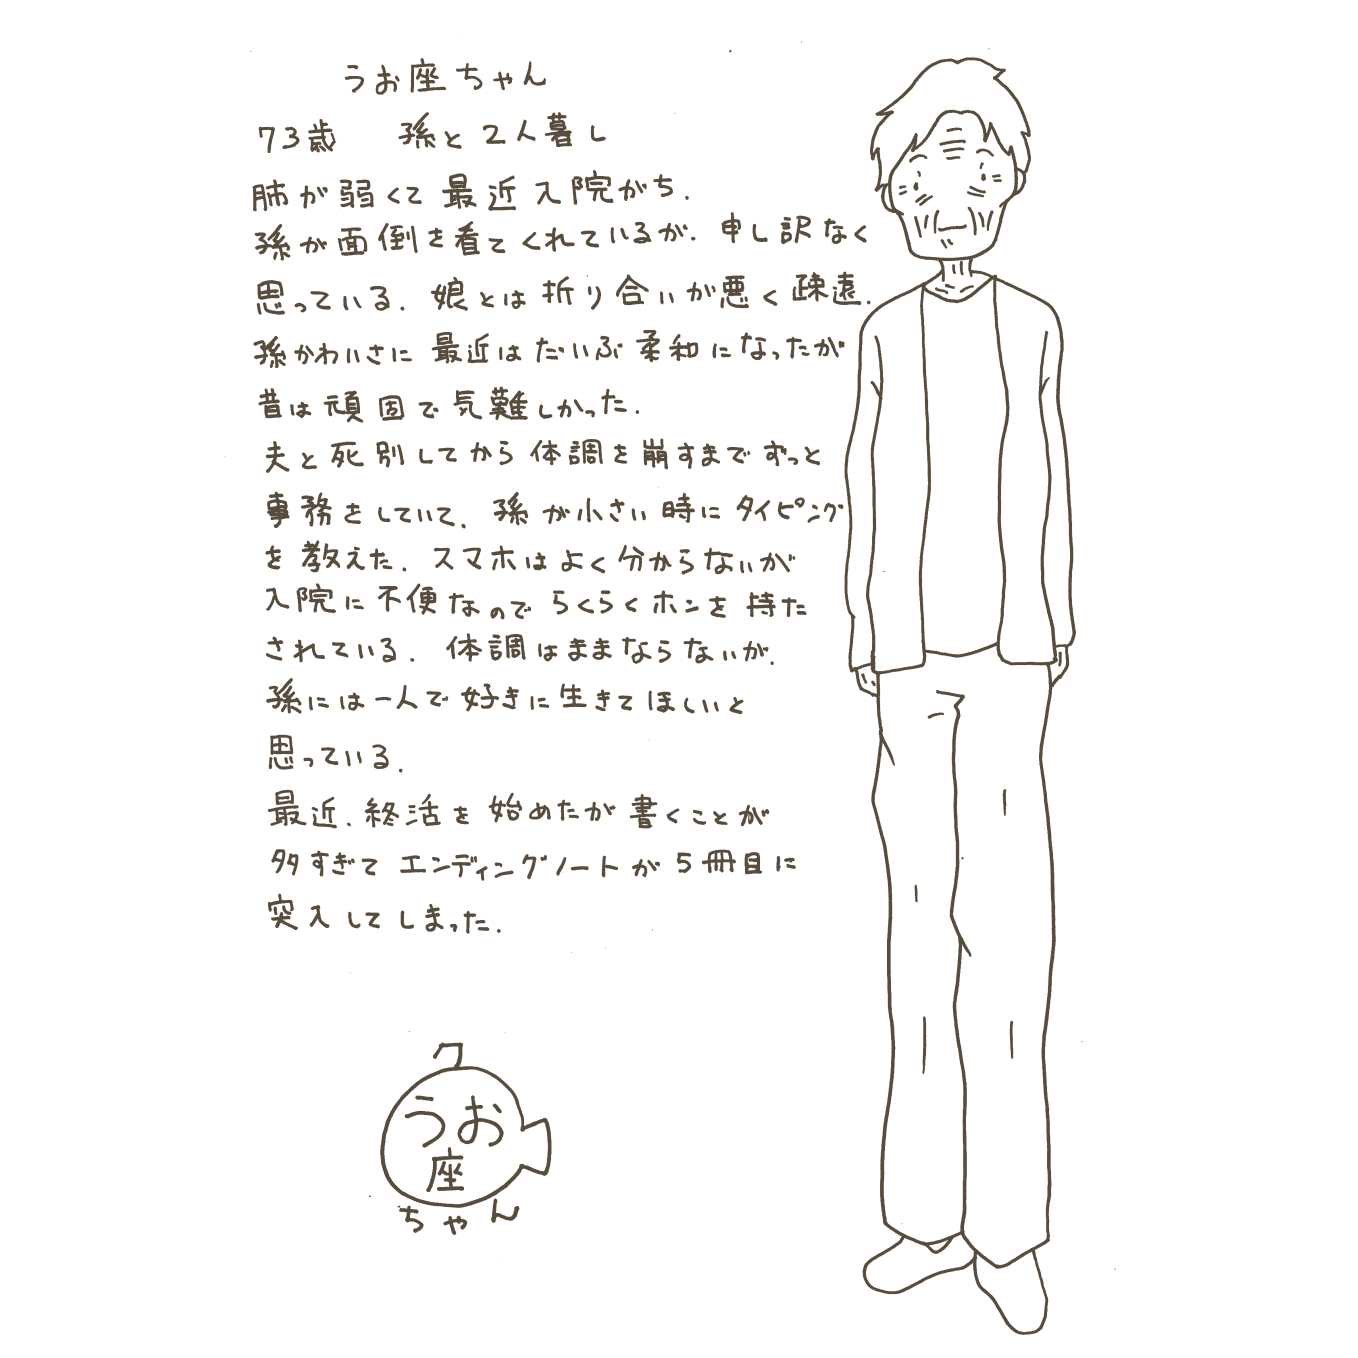 うお座ちゃん
73歳 孫と2人暮し
肺が弱くて最近入院がち.
孫が面倒を看てくれているが.申し訳なく
思っている.娘とは折り合いが悪く疎遠.
孫かわいさに最近はだいぶ柔和になったが
昔は頑固で気難しかった.
夫と死別してから体調を崩すまでずっと
事務をしていて.孫が小さい時にタイピング
を教えた.スマホはよく分からないが
入院に不便なのでらくらくホンを持た
されている.体調はままならないが.
孫には一人で好きに生きてほしいと
思っている.
最近.終活を始めたが書くことが
多すぎてエンディングノートが5冊目に
突入してしまった.
ワ
うお
座
ちゃん